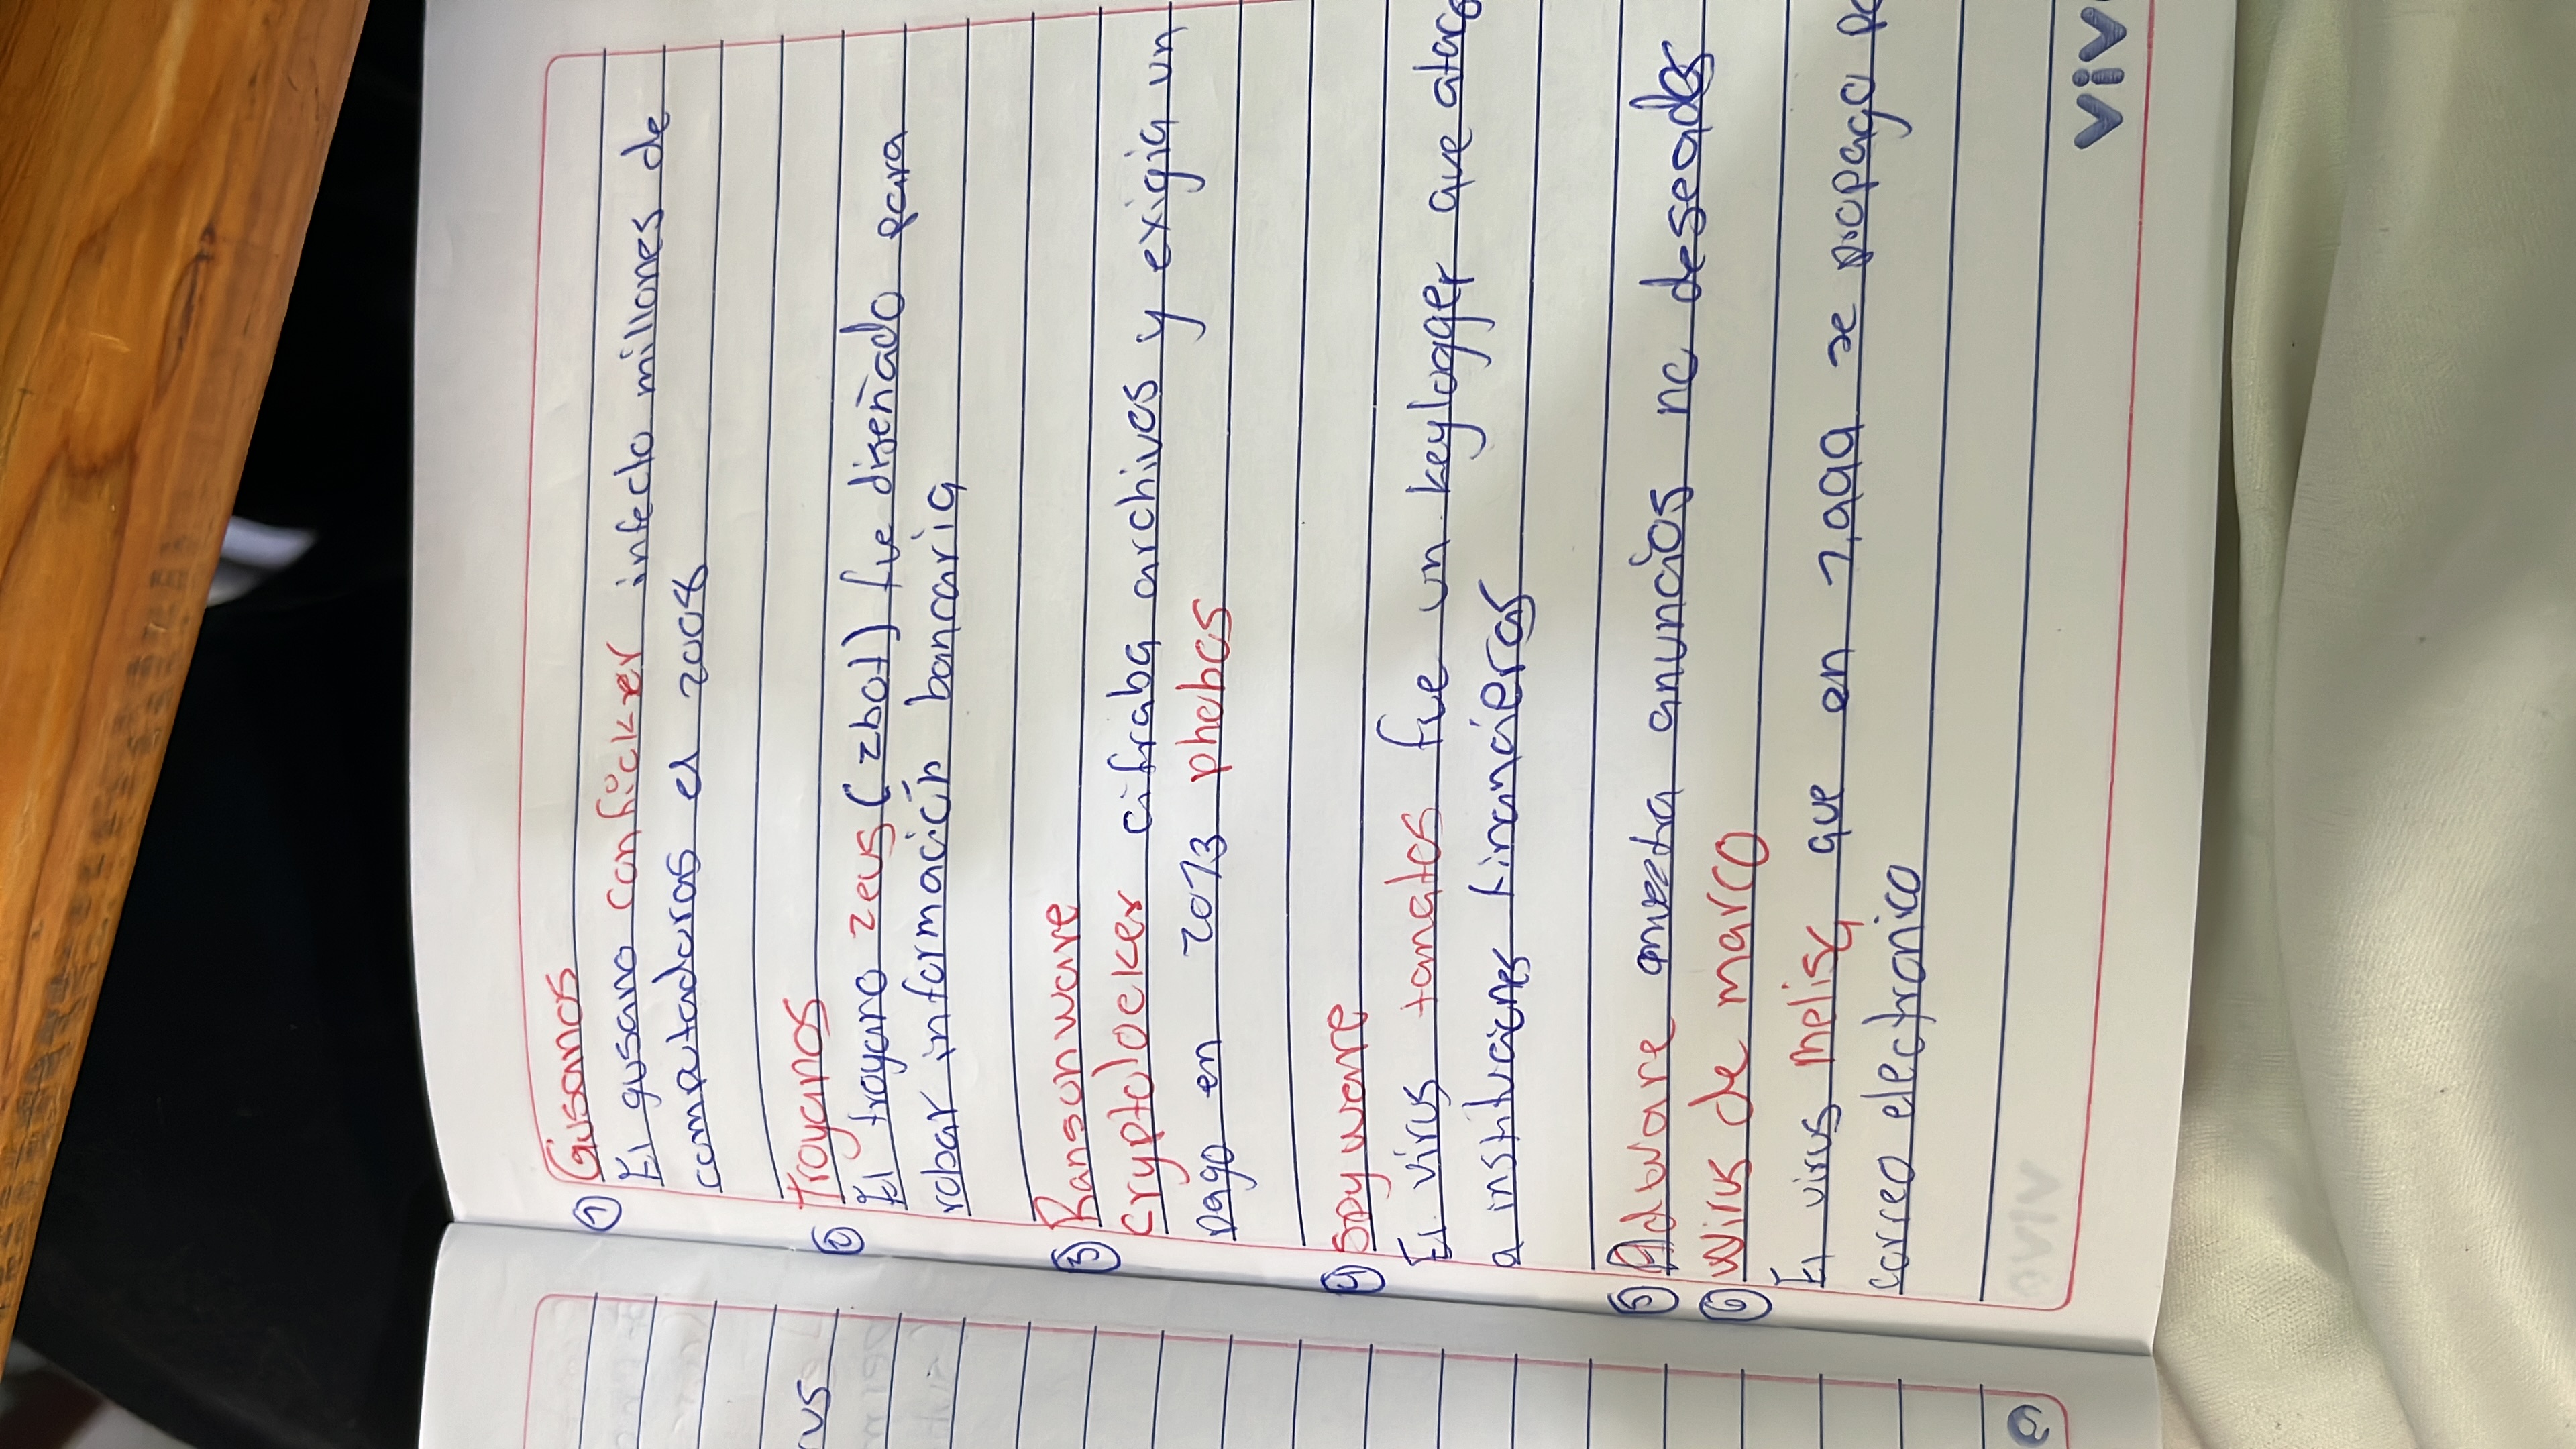 ① Gusanos
El gusano conficker infecto millones de
computadoras el 2008
② Troyanos
El troyano zeus (zbot) fue diseñado para
robar información bancaria
③ Ransonware
cryptolocker cifraba archivos y exigia un
pago en 2013 phobos
④ spyware
El virus tomates fue un keylogger que ataco
a instituciones financieras
⑤ Adware muestra anuncios no deseados
⑥ Wirus de marco
El virus melisa que en 1,999 se propago
correo electronico
vivo